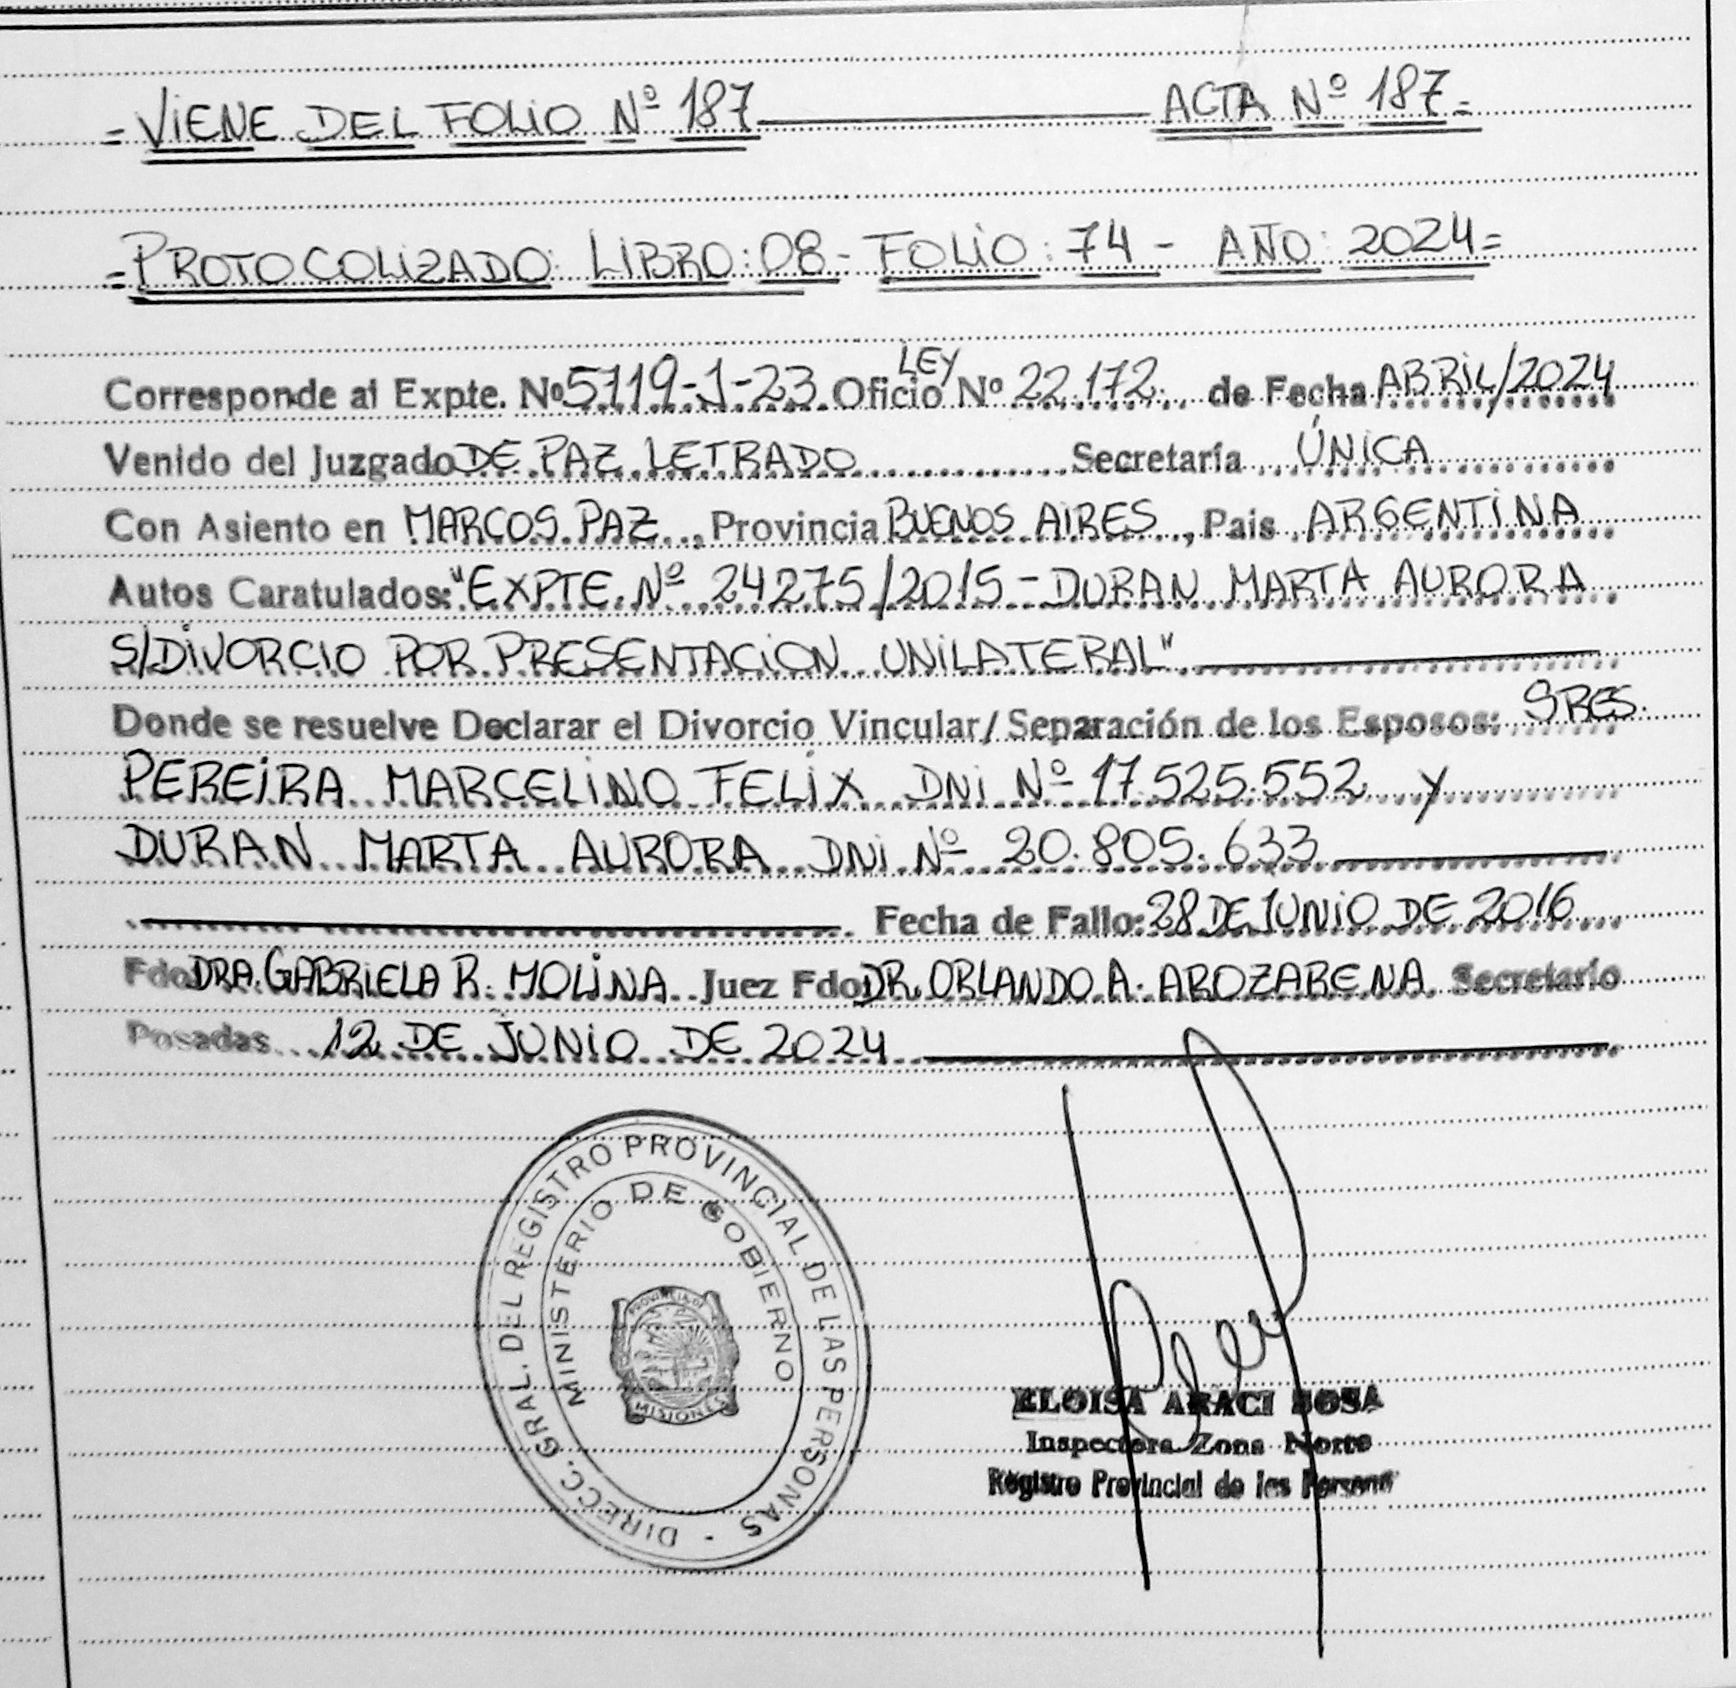 = VIENE DEL FOLIO Nº 187 ACTA Nº 187 =
= PROTOCOLIZADO: LIBRO: 08 - FOLIO: 74 - AÑO: 2024 =
Corresponde al Expte. Nº 5719-J-23 Oficio LEY Nº 22.172 de Fecha ABRIL/2024
Venido del Juzgado DE PAZ LETRADO Secretaría ÚNICA
Con Asiento en MARCOS PAZ, Provincia BUENOS AIRES, Pais ARGENTINA
Autos Caratulados: "EXPTE. Nº 24275/2015 - DURAN MARTA AURORA
S/DIVORCIO POR PRESENTACION UNILATERAL"
Donde se resuelve Declarar el Divorcio Vincular/Separación de los Esposos: SRES.
PEREIRA MARCELINO FELIX DNI Nº 17.525.552 Y
DURAN MARTA AURORA DNI Nº 20.805.633
Fecha de Fallo: 28 DE JUNIO DE 2016
Fdo DRA. GABRIELA R. MOLINA Juez Fdo DR. ORLANDO A. AROZARENA Secretario
Posadas 12 DE JUNIO DE 2024
DIRECC. GRAL. DEL REGISTRO PROVINCIAL DE LAS PERSONAS -
MINISTERIO DE GOBIERNO
PROVINCIA DE
MISIONES
ELOISA ARACI SOSA
Inspectora Zona Norte
Registro Provincial de las Personas